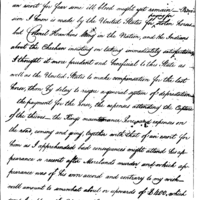 an escort for fear some ill blood might yet remain
sion I have is made by the United States for stolen horses
but Colonel Hawkins being in the Nation, and the Indians
of the Cheehaw insisting on taking immediately satisfaction
I thought it more prudent and beneficial to the State as
well as the United States to make compensation for the lost
horses, than by delay to risque a general system of depredations
the payment for the horses, the expences attending the Capture
of the thieves the Kings maintenance & expences on
the road, coming and going together with that of an escort for him
as I apprehended bad consequences might attend his ap-
pearance so recent after Merchants murder, and which ap-
pearance was of his own accord and contrary to my wish
will amount to somewhat about or upwards of $ 400, which